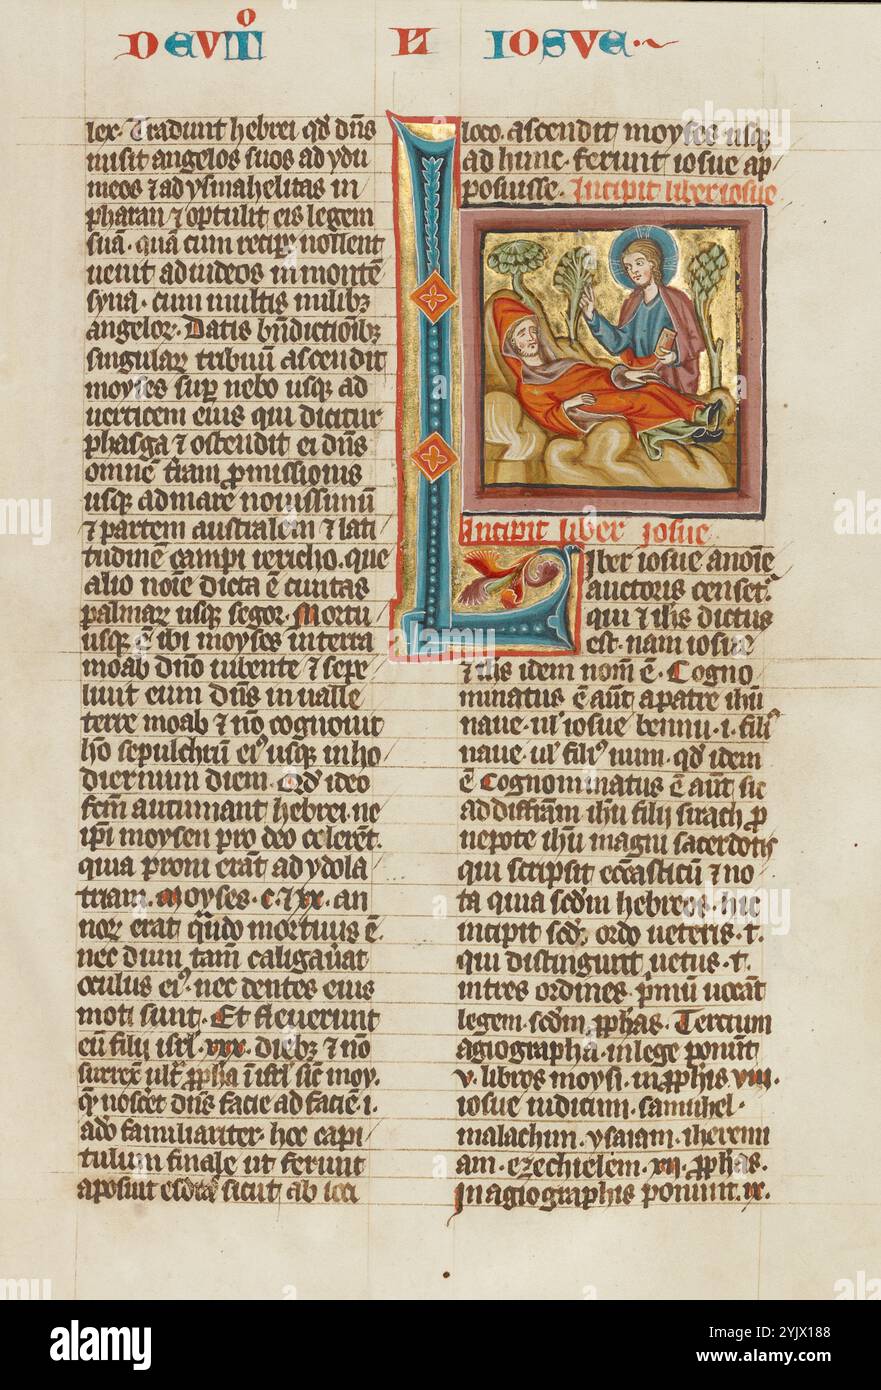 IOSVE
lex. Tradunt hebrei qđ dñs
misit angelos suos ad ydu
meos ⁊ ad ysmahelitas in
pharan ⁊ optulit eis legem
suā. quā cum recipe nollent
uenit ad iudeos in montē
syna. cum multis milibꝫ
angeloꝝ. Datis bñdictiōibꝫ
singulaꝝ tribuū ascendit
moyses suꝑ nebo usqꝫ ad
uerticem eius qui dicitur
phasga ⁊ ostendit ei dñs
omnē tram ꝓmissionis
usqꝫ ad mare nouissimū
⁊ partem australem ⁊ lati
tudinē campi iericho. que
alio noīe dicta ē ciuitas
palmaꝝ usqꝫ segor. Mortu
usqꝫ ē ibi moyses in terra
moab dño iubente ⁊ sepe
liuit eum dñs in ualle
terre moab ⁊ nō cognouit
hō sepulchrū eiꝰ usqꝫ in ho
diernum diem. Qđ ideo
fcm autumant hebrei. ne
ipi moysen pro deo celerēt.
quia proni erāt ad ydola
triam. Moyses .c. ⁊ xx. an
noꝝ erat qñdo mortuus ē.
nec dum tam caligauat
oculus eiꝰ. nec dentes eius
moti sunt. Et fleuerunt
eū filii isrl .xxx. diebꝫ ⁊ nō
surrex ult ꝓpha ī isrl sic moy.
qꝫ nosct dñs facie ad faciē .i.
ad̄o familiariter. hoc capi
tulum finale ut ferunt
aposuit esdra sicut ab illi
loco. ascendit moyses usqꝫ
ad hunc. ferunt iosue ap
posuisse. Incipit liber iosue
Incipit liber iosue
Liber iosue a noīe
auctoris censetꝰ.
qui ⁊ ihs dictus
est. nam iosue
⁊ ihs idem nom̄ ē. Cogno
minatus ē aūt a patre ihū
naue. ul iosue bennu .i. filiꝰ
naue. ul filiꝰ num. qđ idem
ē Cognominatus ē aūt sic
ad diffiam ihū filij sirach ꝓ
nepote ihū magni sacerdotis
qui scripsit eccasticū ⁊ no
ta quia sedm hebreos. hic
incipit sedꝰ ordo ueteris .t.
qui distingunt uetus .t.
in tres ordines. pmū uocāt
legem. sedm ꝓphas. Tercium
agiographa. in lege ponūt
v. libros moysi. in ꝓphis viii.
iosue iudicum. samuhel.
malachim. ysaiam. iheremi
am. ezechielem. xii. ꝓphas.
In agiographis ponunt .ix.
alamy
Image ID: 2YJX188
www.alamy.com